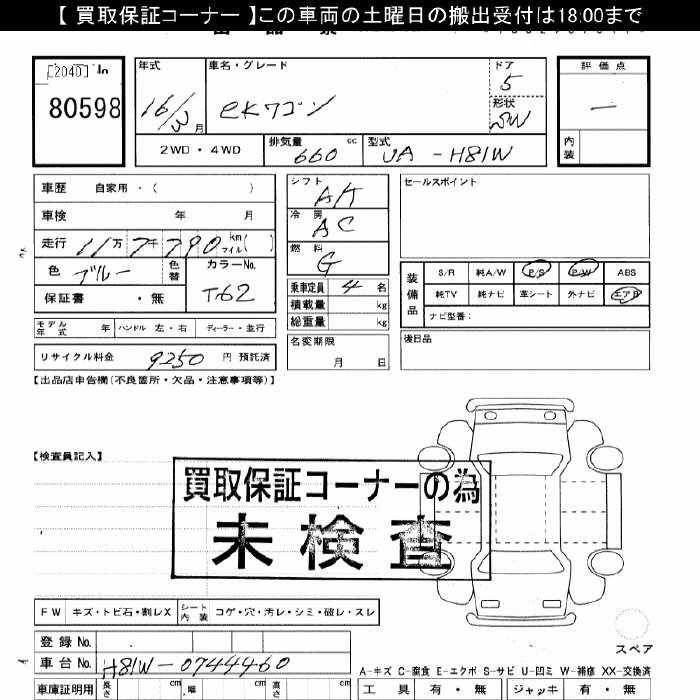 【 買取保証コーナー 】この車両の土曜日の搬出受付は18:00まで
[2040]
80598
年式
16/3月
車名・グレード
eKワゴン
ドア
5
形状
SW
評価点
—
内装
2WD ・ 4WD
排気量 660 cc
型式 UA - H81W
車歴 自家用 ・ ( )
車検 年 月
走行 11万7千790 km マイル ( )
色 ブルー 色替
カラーNo. T62
保証書 ・ 無
モデル年式 年 ハンドル 左・右 ディーラー・並行
リサイクル料金 9250 円 預託済
シフト AT
冷房 AC
燃料 G
乗車定員 4 名
積載量 kg
総重量 kg
名変期限
月 日
セールスポイント
装備品
S/R 純A/W P/S P/W ABS
純TV 純ナビ 革シート 外ナビ エアB
ナビ型番：
後日品
【出品店申告欄(不良箇所・欠品・注意事項等)】
【検査員記入】
買取保証コーナーの為
未検査
FW キズ・トビ石・割レX シート内装 コゲ・穴・汚レ・シミ・破レ・スレ
スペア
登録 No.
車台 No. H81W-0744460
A-キズ C-腐食 E-エクボ S-サビ U-凹ミ W-補修 XX-交換済
車庫証明用 長さ cm 幅 cm cm
工具 有 ・ 無 ジャッキ 有 ・ 無